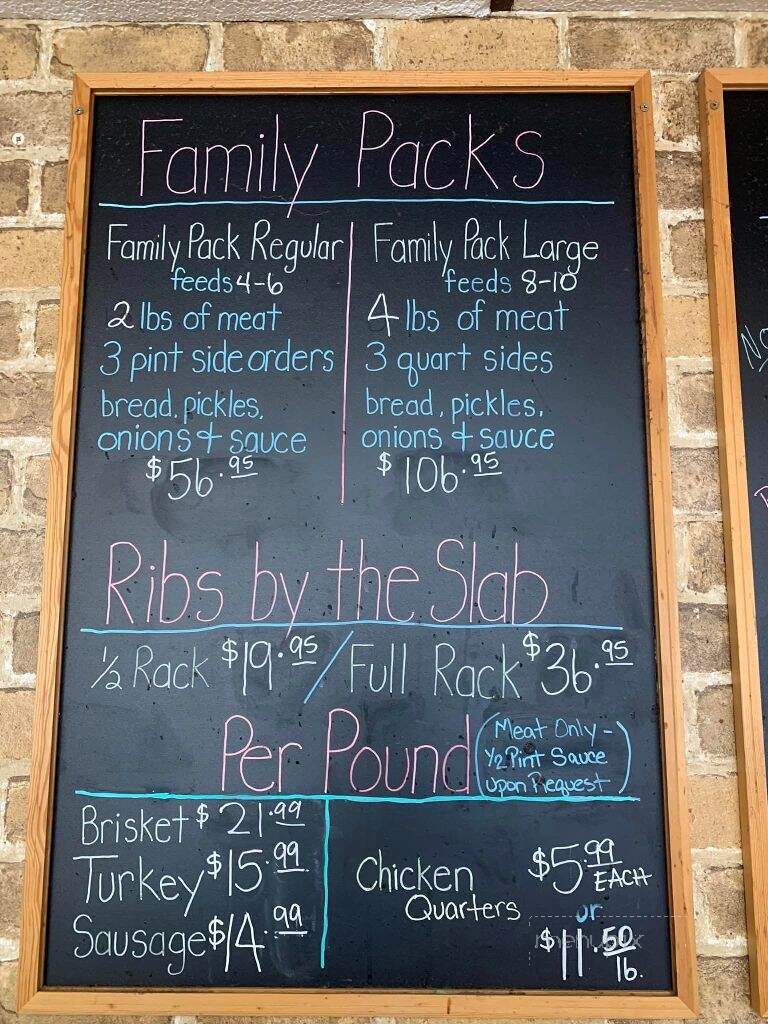 Family Packs
Family Pack Regular
feeds 4-6
2 lbs of meat
3 pint side orders
bread, pickles,
onions & sauce
$56.95
Family Pack Large
feeds 8-10
4 lbs of meat
3 quart sides
bread, pickles,
onions & sauce
$106.95
Ribs by the Slab
1/2 Rack $19.95 / Full Rack $36.95
Per Pound (Meat Only -
1/2 Pint Sauce
Upon Request)
Brisket $21.99
Turkey $15.99
Sausage $14.99
Chicken
Quarters
$5.99
EACH
or
$11.50
lb.